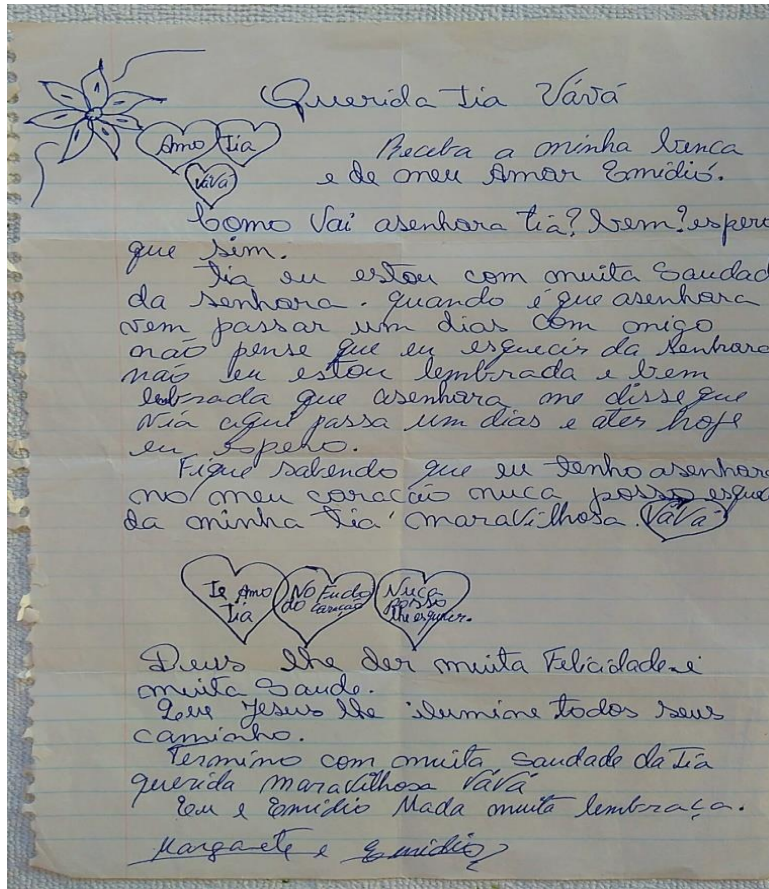 Querida tia Vává
Amo tia
VáVá
Receba a minha benca
e de meu Amor Emidió.
Como Vai asenhora tia? bem? espero
que sim.
tia eu estou com muita Saudad
da senhora. quando é que asenhora
vem passar um dias com omigo
não pense que eu esquecis da senhora
não eu estou lembrada e bem
lebrada que asenhora me disse que
Via aqui passa um dias e ater hoje
eu espero.
Fique sabendo que eu tenho asenhora
no meu coracão nuca posso esque
da minha tia maravilhosa. VáVá
Te Amo
tia
No Fudo
do Coração
Nuca
posso
lhe esquecer.
Deus lhe der muita Felicidade e
muita Saude.
Que Jesus lhe ilumine todos seus
caminho.
Termino com muita saudade da tia
querida maravilhosa VáVá
Eu e Emidio Mada muita lembraça.
Margarete e Emidio